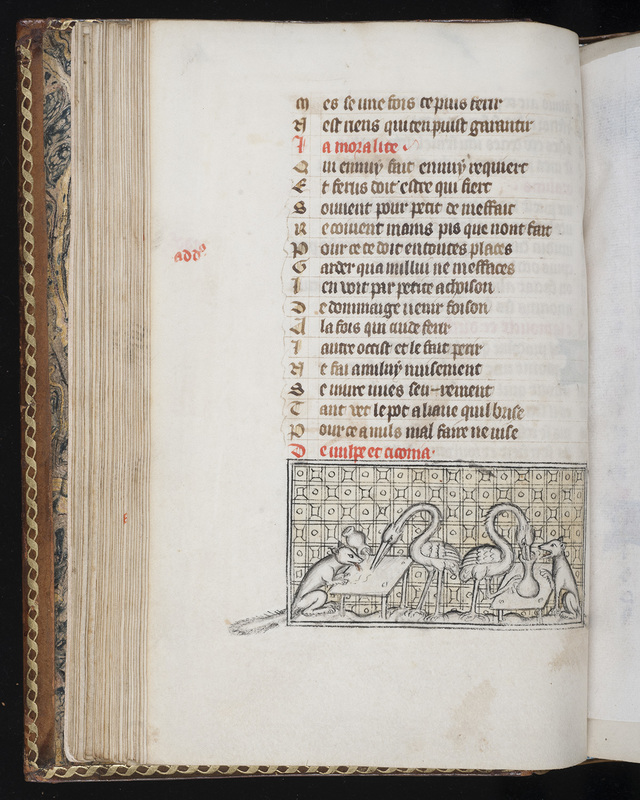 M es se une fois te puis ferir
N est riens qui ten puist garantir
La moralite .
Q ui ennuy fait ennuy requiert
E t ferus doit estre qui fiert
S ouvent pour petit de meffait
R ecoivent mains pis que nont fait
P our ce te doit en toutes places
G arder qua nullui ne meffaces
I en voit par petite achoison
D e dommaige venir foison
A la fois qui cuide ferir
L autre occist et le fait perir
N e fai a nulluy nuisement
S e vivre vues seurement
T ant vet le pot a liaue quil brise
P our ce a nuls mal faire ne vise
add°
D e vulpe et ciconia .